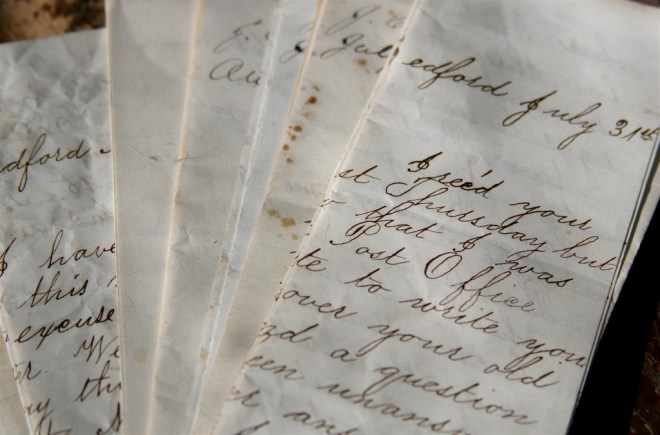 edford July 31st
I rec'd your
st Thursday but
that I was
Post Office
te to write you
over your old
nd a question
een unansw
er ans
J. 
Jul
Au
dford
I have
this
excuse
r. We
y th